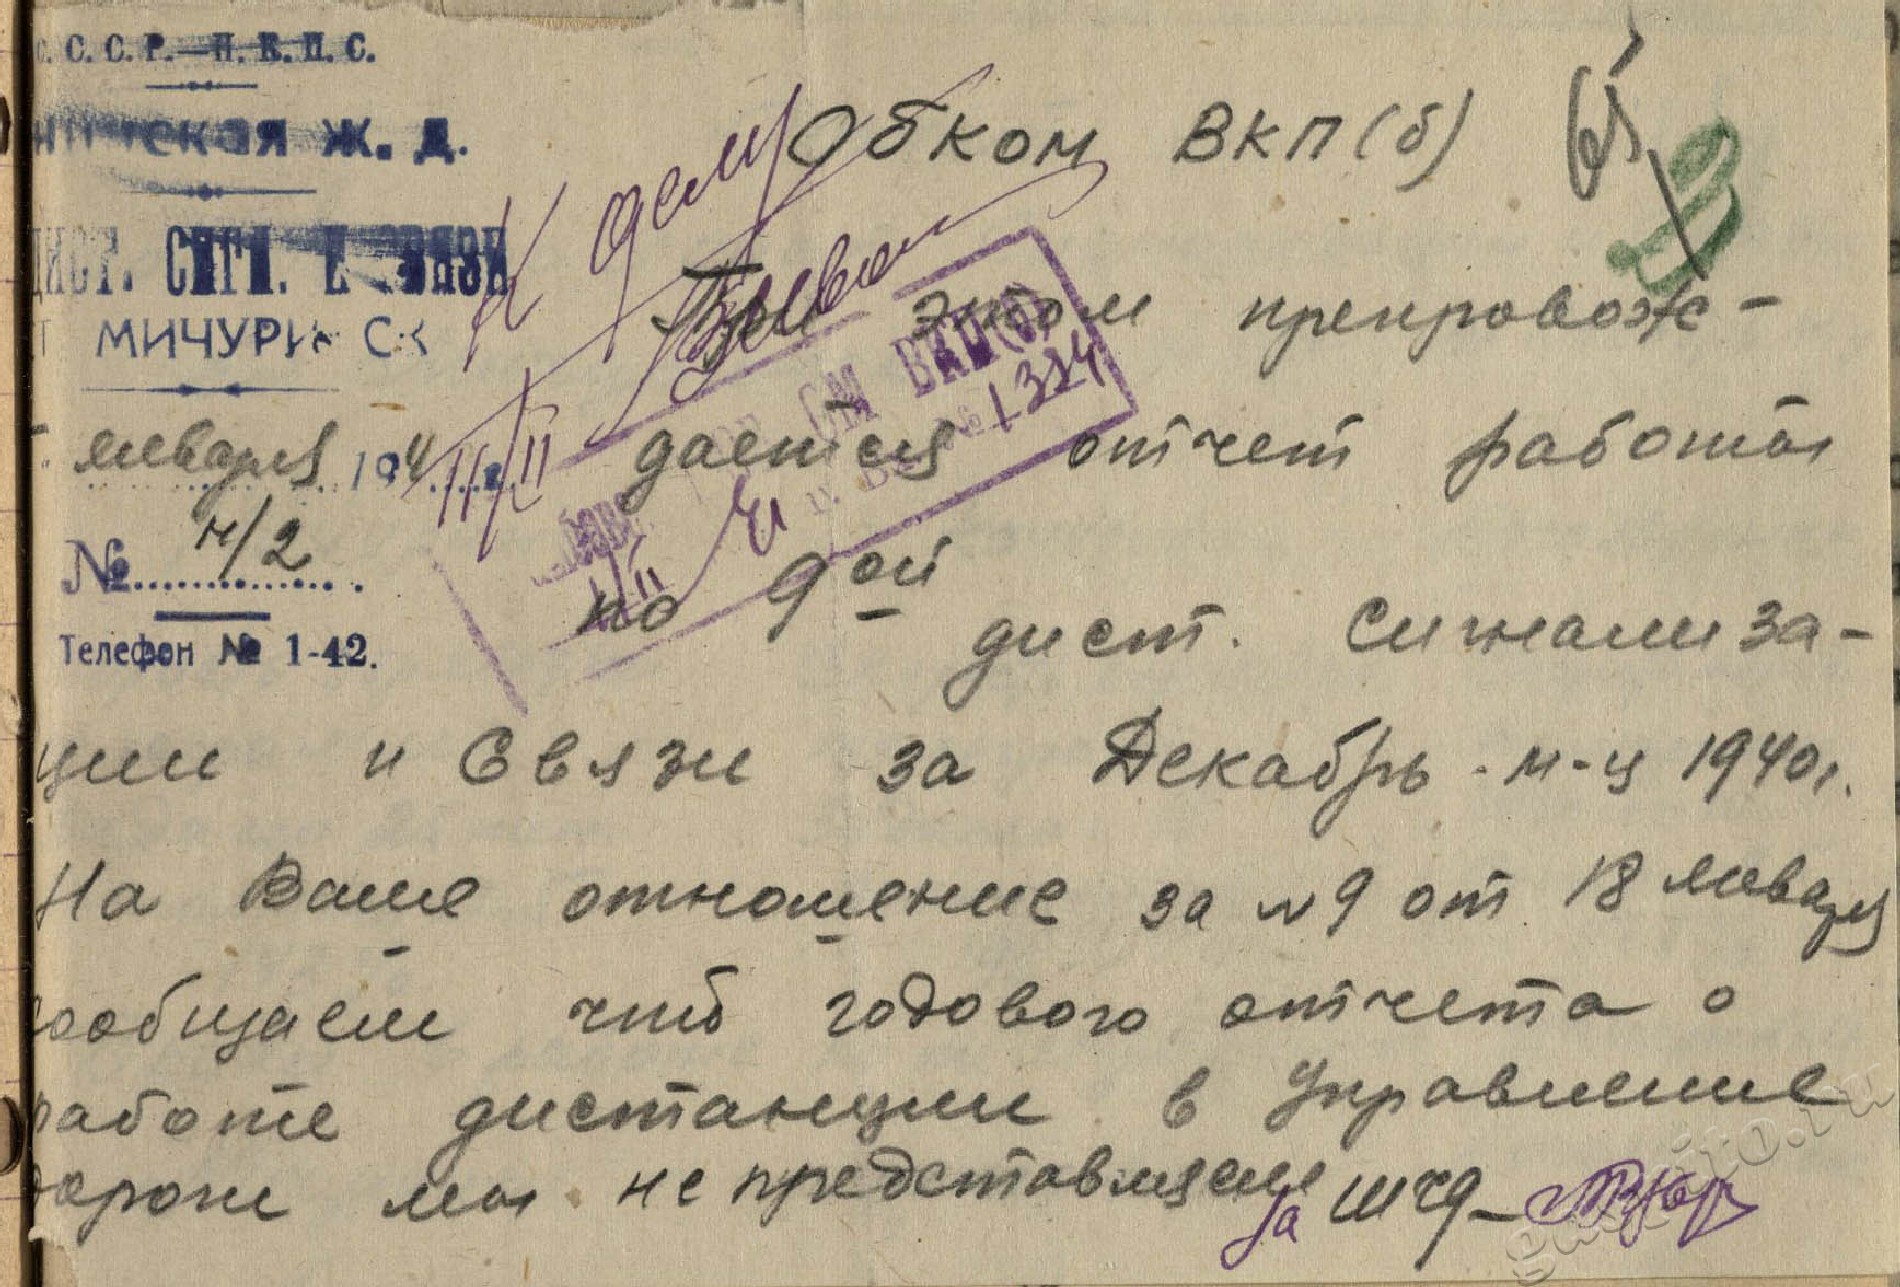 С. С. С. Р.—Н. К. П. С.
ская Ж. Д.
ДИСТ. СИГН. И СВЯЗИ
МИЧУРИНСК
января 194
№ н/2
Телефон № 1-42.
Обком ВКП(б)
65
К делу
ВКП(б)
№ 1334
11/II
При этом препровож-
дается отчет работы
по 9ой
дист. сигнализа-
ции и Связи за Декабрь м-ц 1940г.
На Ваше отношение за №9 от 18 января
сообщаем что годового отчета о
работе дистанции в Управление
дороги мы не представляем
за ШЧ9